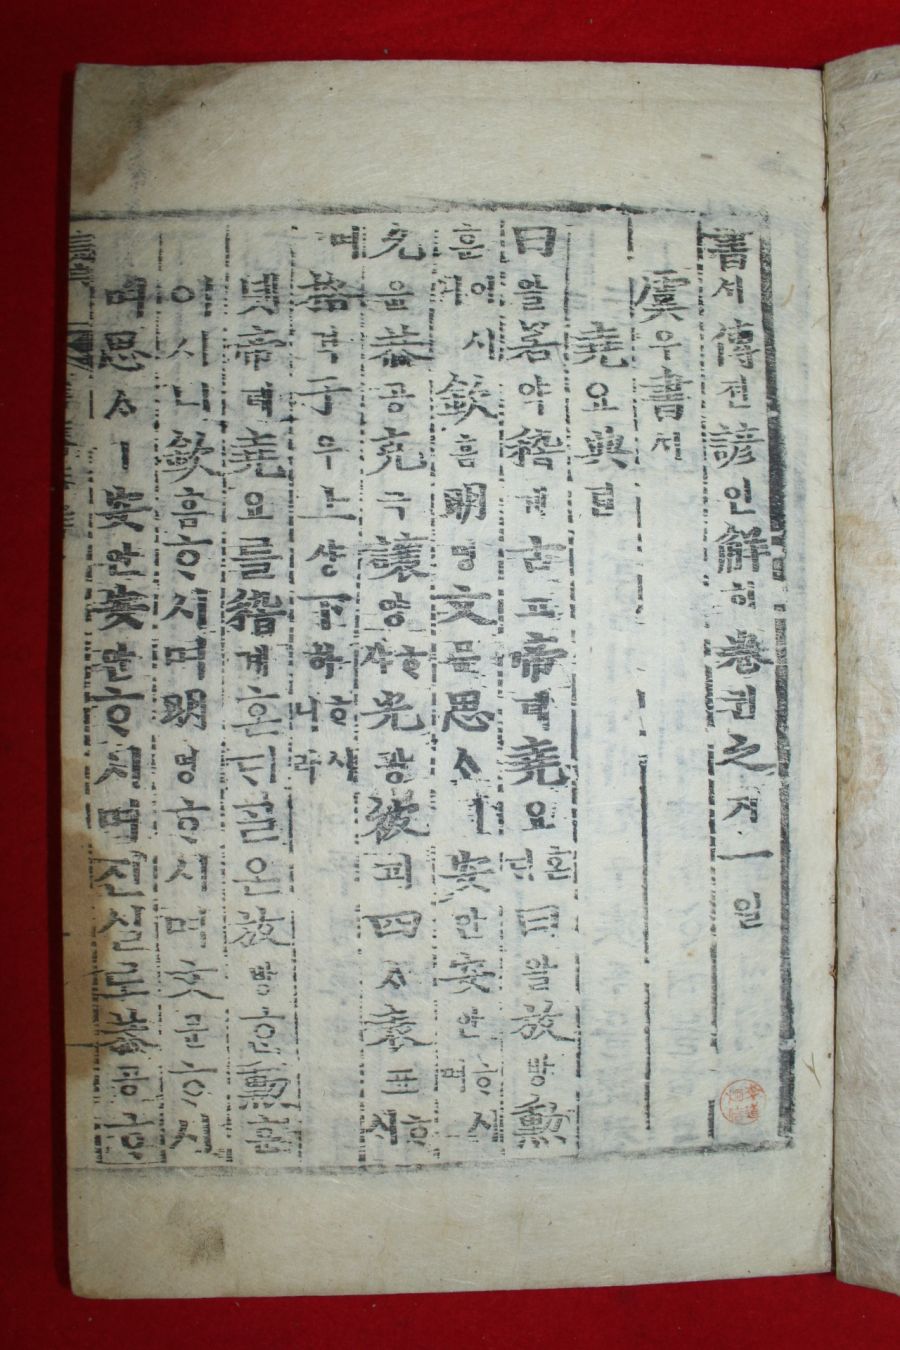 書셔傳젼諺언解ᄒᆡ卷권之지一일
虞우書셔
堯요典뎐
曰왈若약稽계古고帝뎨堯요ᄒᆞᆫᄃᆡᆫ曰왈放방勳훈
흠이시며欽흠明명文문思ᄉᆞㅣ安안安안ᄒᆞ시며
允윤恭공克극讓양ᄒᆞ샤光광被피四ᄉᆞ表표ᄒᆞ시며
格격于우上샹下하ᄒᆞ시니라
녯帝뎨堯요를稽계혼ᄃᆡᆫ ᄀᆞᆯ온放방ᄒᆞᆫ勳훈
이시니欽흠ᄒᆞ시며明명ᄒᆞ시며文문ᄒᆞ시
며思ᄉᆞㅣ安안安안ᄒᆞ시며진실로恭공ᄒᆞ